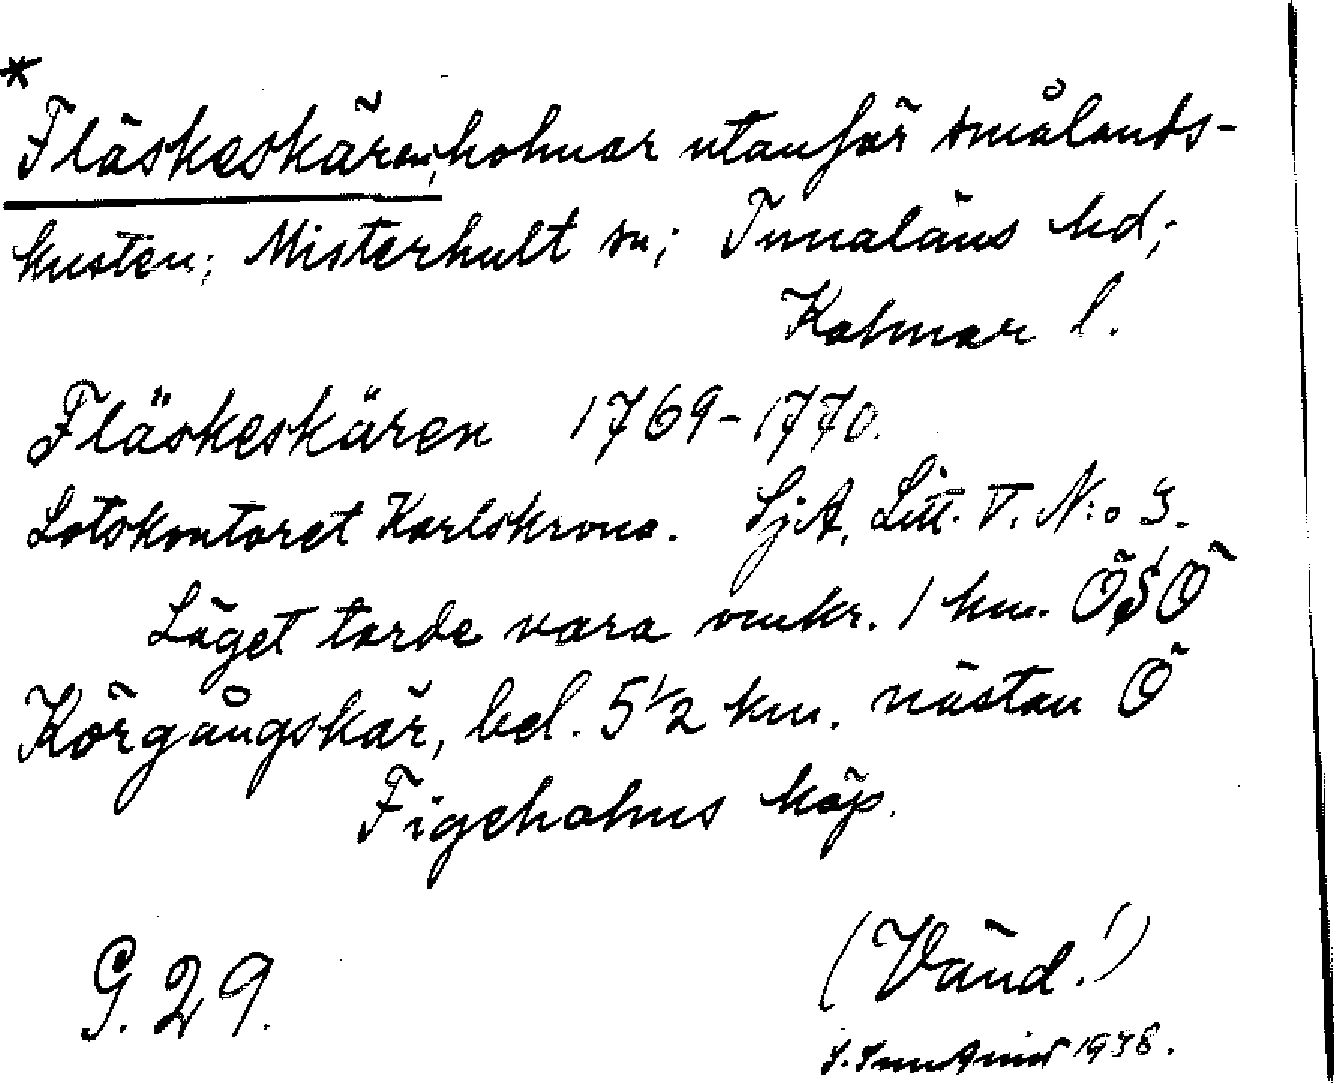 *
Fläskeskären, holmar utanför smålands-
kusten; Misterhult sn; Tunaläns hd;
Kalmar l.
Fläskeskären 1769-1770.
Lotskontoret Karlskrona. SjA, Litt. T. N:o 3.
Läget torde vara omkr. 1 km. ÖSÖ
Körgångskär, bel. 5 1/2 km. nästan Ö
Figeholms köp.
G. 29.
(Vänd!)
1938.